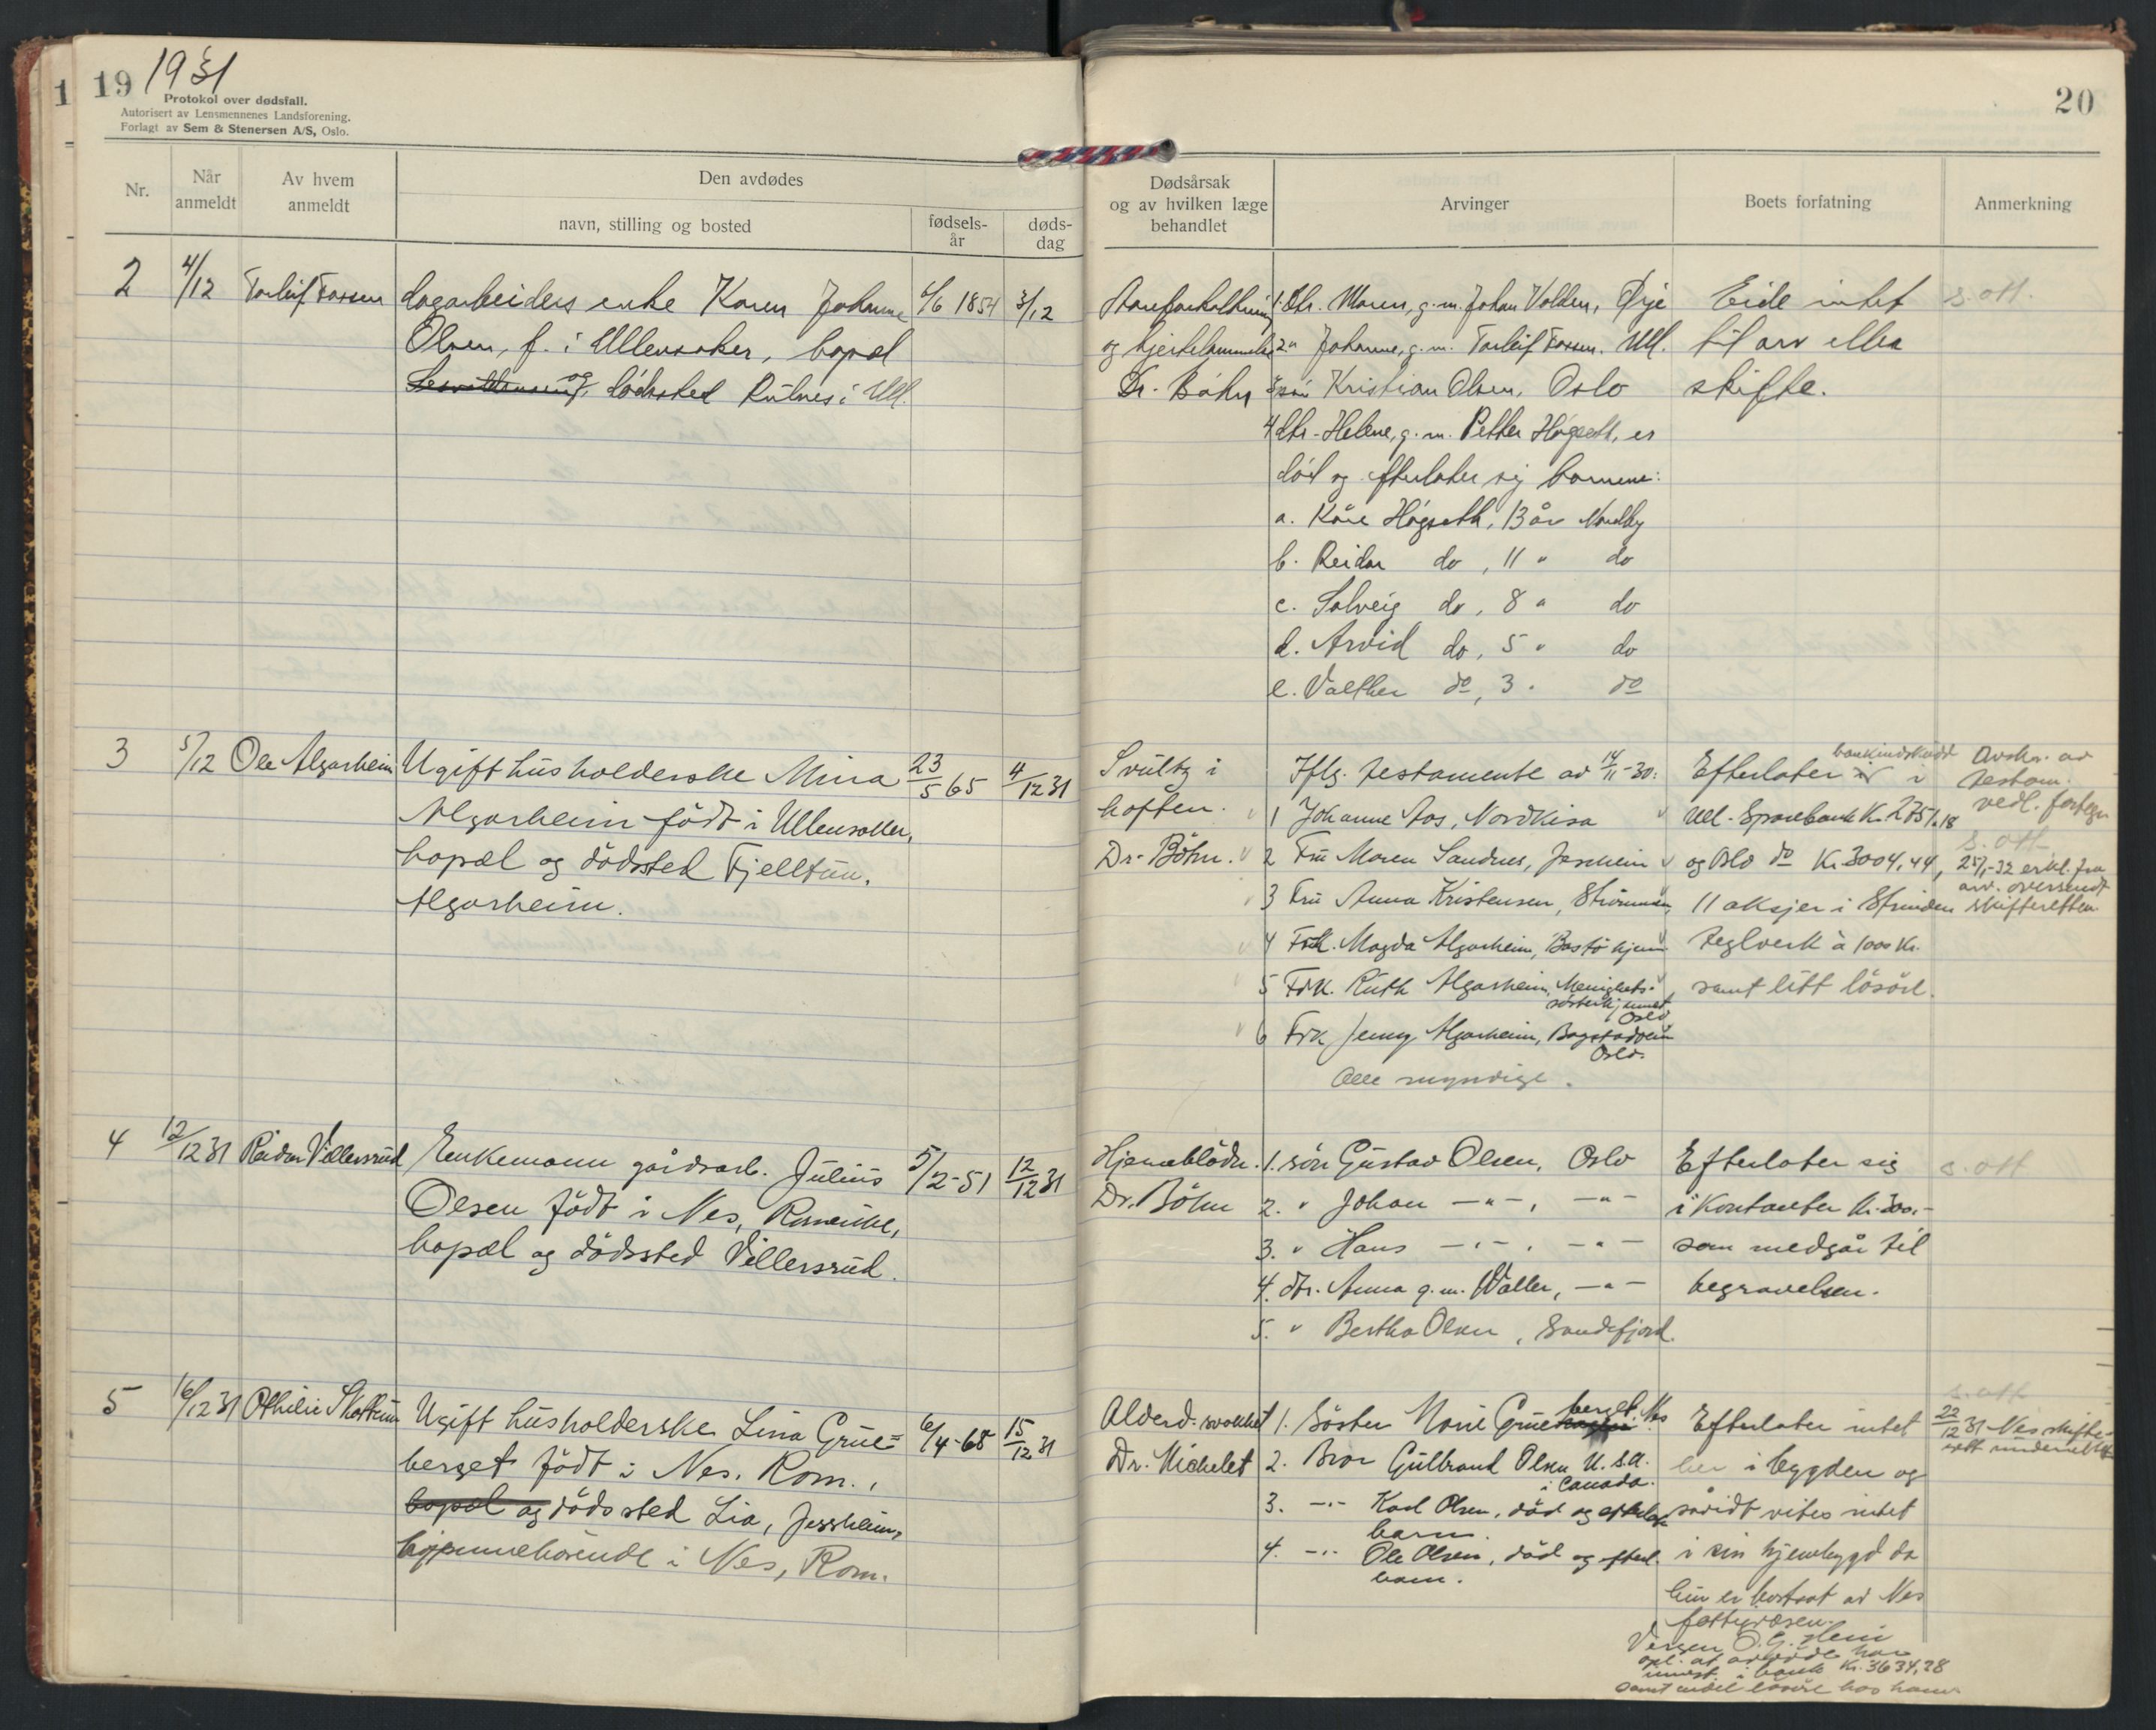 1
19 1931
Protokol over dødsfall.
Autorisert av Lensmennenes Landsforening.
Forlagt av Sem & Stenersen A/S, Oslo.
20
Nr.
Når anmeldt
Av hvem anmeldt
Den avdødes
navn, stilling og bosted
fødsels-år
døds-dag
Dødsårsak
og av hvilken læge
behandlet
Arvinger
Boets forfatning
Anmerkning
2 4/12 Torleif Fossen
dagarbeiders enke Karen Johanne
Olsen, f. i Ullensaker, bopæl
og dødssted Rulnes i Ull.
4/6 1854 3/12
Åreforkalkning
og hjertelammelse
Dr. Bøhn
1. Dtr. Maren, g.m. Johan Volden, Øije
2 " Johanne, g.m. Torleif Fossen. Ull.
3 søn Kristian Olsen, Oslo
4 dtr. Helene, g.m. Petter Høgseth, er
død og efterlater sig barnene:
a. Kåre Høgseth, 13 år Nordby
b. Reidar do, 11 " do
c. Solveig do, 8 " do
d. Arvid do, 5 " do
e. Valther do, 3 " do
Eide intet
til arv eller
skifte.
s. ott.
3 5/12 Ole Algarheim
Ugift husholderske Mina
Algarheim født i Ullensaker,
bopæl og dödssted Fjelltun,
Algarheim.
23/5 65 4/12 31
Svulst i
hoften.
Dr. Böhn.
Iflg. testamente av 14/11-30:
1 Johanne Aas, Nordkisa
2 Fru Maren Sandnes, Jessheim
3 Fru Anna Kristensen, Strömmen,
4 Frk. Magda Algarheim, Bastö hjem
5 Frk. Ruth Algarheim, Menighets-
søsterhjemmet
Oslo
6 Frk Jenny Algarheim, Bogstadvein
Oslo.
Alle myndige.
bankindskudd
Efterlater i
Ull. Sparebank K. 2751.18
og Oslo do Kr. 3004,44,
11 aksjer i Strinden
teglverk à 1000 Kr.
samt litt lösöre.
Avskr. av
testam.
vedl. fortegn
s. ott
25/1-32 erkl. fra
arv. oversendt
skifteretten.
4 12/12 31 Reidar Villersrud
Enkemann gårdsarb. Julius
Olsen födt i Nes, Romerike,
bopæl og dödssted Villersrud.
5/2-51 12/12 31
Hjerneblödn.
Dr. Böhn
1. sön Gustav Olsen, Oslo
2. " Johan —"—, —"—
3. " Hans —"—, —"—
4. dtr. Anna g.m. Waller, —"—
5. " Bertha Olsen, Sandefjord.
Efterlater sig
i kontanter kr. 300.-
som medgår til
begravelsen.
s. ott
5 16/12 31 Othilie Skattum
Ugift husholderske Lina Grue=
berget födt i Nes. Rom.,
bopæl og dödssted Lia, Jessheim,
hjemmehörende i Nes, Rom.
6/4-68 15/12 31
Alderd. svakhet
Dr. Michelet
1. Söster Marie Grueberget. Nes
2. Bror Gulbrand Olsen U.S.A.
i Canada.
3. —"— Karl Olsen, död og efterlat.
barn.
4. —"— Ole Olsen, död og efterl.
barn.
Efterlater intet
her i bygden og
såvidt vites intet
i sin hjembygd da
hun er kostet av Nes
fattigvæsen.
Vergen O. G. Heni
opl. at avdöde har
innest. i bank Kr. 3634,28
samt endel lösöre hos ham.
s. ott
22/12 31 Nes skifte-
rett underrettet